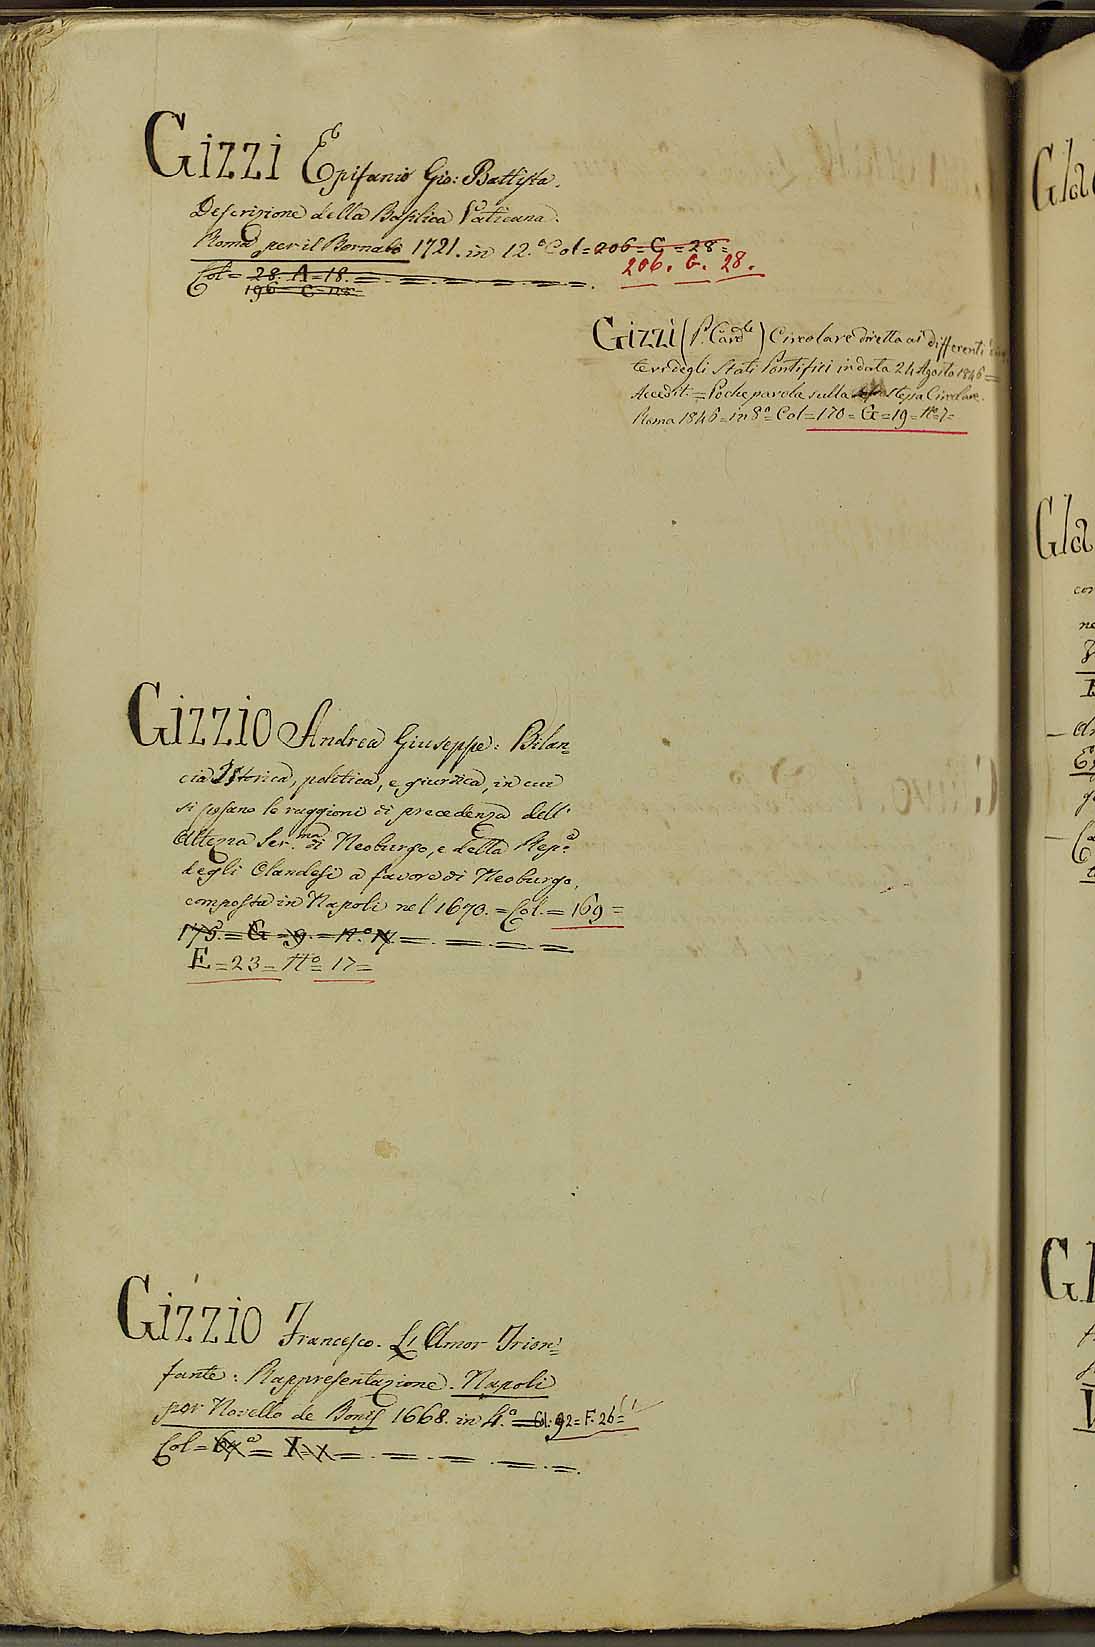 GIZZI Epifanio Gio: Battista.
Descrizione della Basilica Vaticana.
Roma per il Bernabò 1721. in 12.° Col = 206 = G = 28 =
206. G. 28.
Col = 28. A = 18. =
196 = C =
GIZZI (P. Card.le) Circolare diretta ai differenti
degli Stati Pontifici in data 24 Agosto 1846 =
Accedit = Poche parole sulla stessa Circolare.
Roma 1846 = in 8° = Col = 170 = G = 19 = N° 7 =
GIZZIO Andrea Giuseppe: Bilan=
cia Istorica, politica, e giuridica, in cui
si posano le raggioni di precedenza dell'
Altezza Ser.ma di Neoburgo, e della Rep.a
degli Olandesi a favore di Neoburgo,
composta in Napoli nel 1670. = Col. = 169 =
175. = G = 9. = N.° 17. =
E = 23 = N° = 17 =
GIZZIO Francesco. L' Amor Trion=
fante: Rappresentazione. Napoli
per Novello de Bonis 1668. in 4.° = Col. 92 = F. 26 =
Col = = I =
Gla
Gla